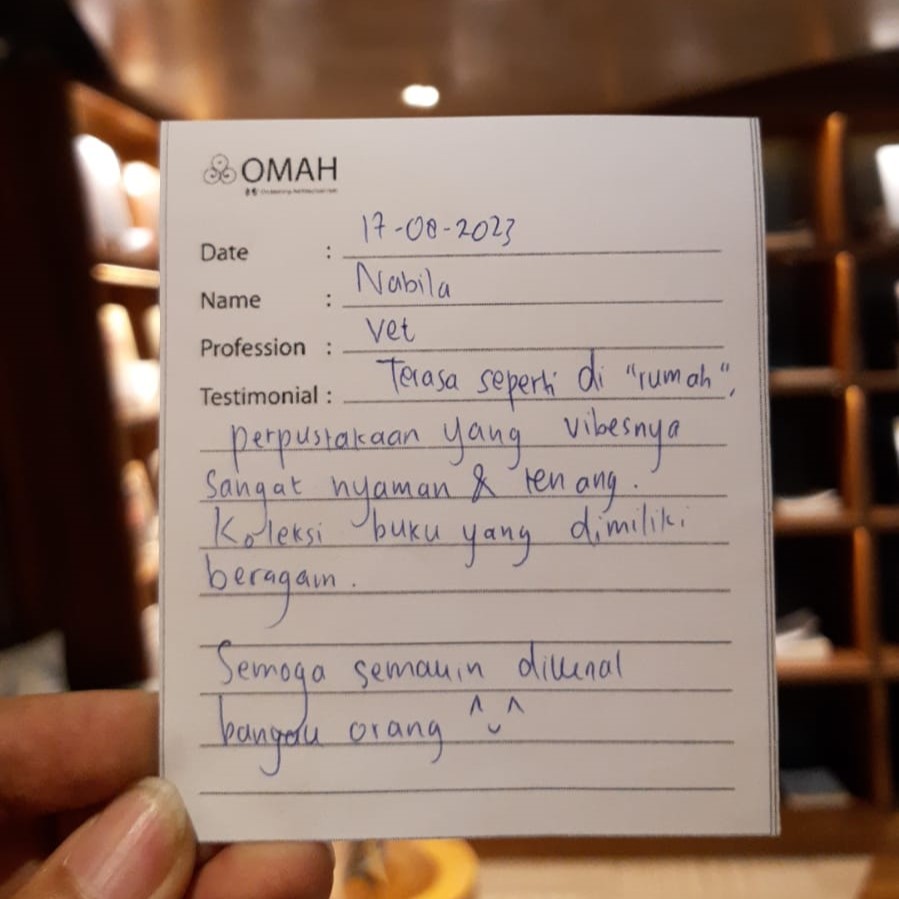 OMAH
Date : 17-08-2023
Name : Nabila
Profession : Vet
Testimonial : Terasa seperti di "rumah",
perpustakaan yang vibesnya
sangat nyaman & tenang.
Koleksi buku yang dimiliki
beragam.
Semoga semakin dikenal
banyak orang ^⌣^